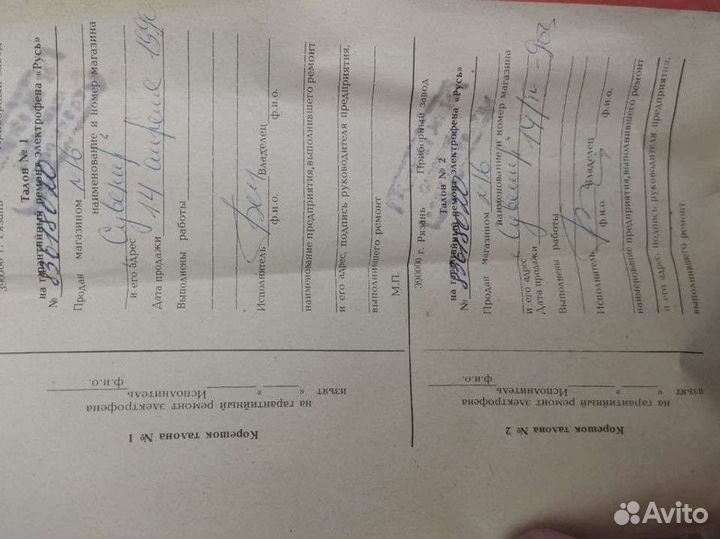 390000 г. Рязань Приборный завод
Талон № 1
на гарантийный ремонт электрофена «Русь»
№
Продан магазином №16
наименование и номер магазина
Сувенир
и его адрес
Дата продажи 14 апреля 199
Выполнены работы
Исполнитель Владелец
ф.и.о.
наименование предприятия, выполнившего ремонт
и его адрес, подпись руководителя предприятия,
выполнившего ремонт
М.П.
Корешок талона № 1
на гарантийный ремонт электрофена
изъят « » Исполнитель
ф.и.о.
390000 г. Рязань Приборный завод
Талон № 2
на гарантийный ремонт электрофена «Русь»
№
Продан магазином №16
наименование и номер магазина
Сувенир
и его адрес
Дата продажи 14/IV-90г
Выполнены работы
Исполнитель Владелец
ф.и.о. ф.и.о.
наименование предприятия, выполнившего ремонт
и его адрес, подпись руководителя предприятия,
выполнившего ремонт
Корешок талона № 2
на гарантийный ремонт электрофена
изъят « » Исполнитель
ф.и.о.
Avito